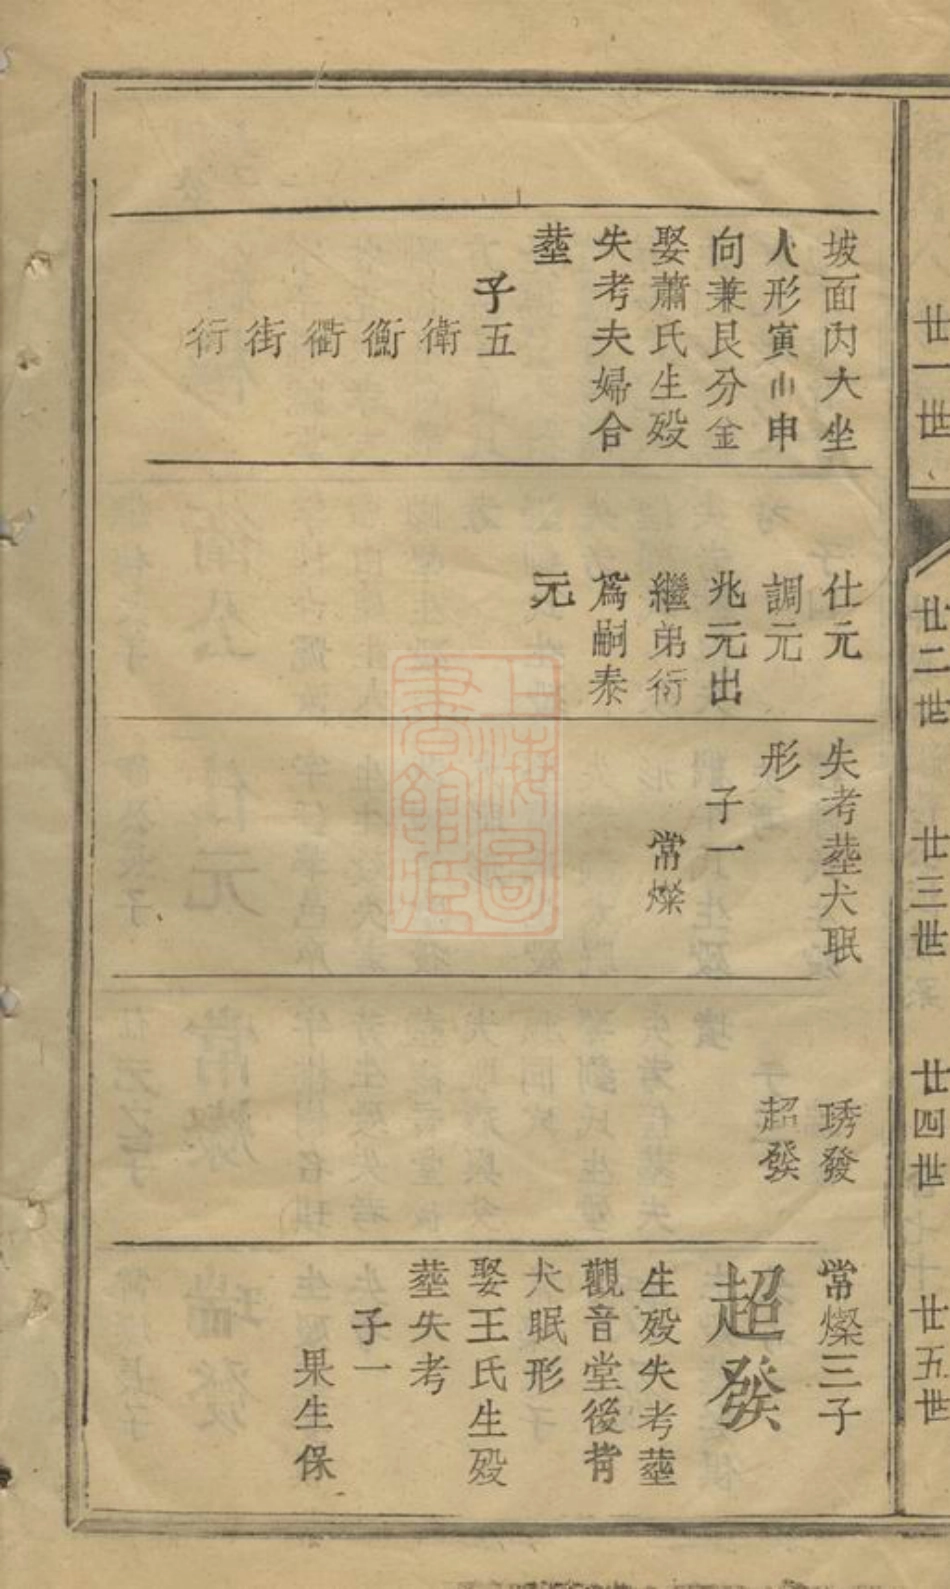 廿一世
廿二世
廿三世
廿四世
廿五世
坡面丙大坐
人形寅山申
向兼艮分金
娶蕭氏生殁
失考夫婦合
塟
子五
衛
衡
衢
街
衍
仕元
調元
兆元出
繼弟衍
爲嗣泰
元
失考塟犬眠
形
子一
常燦
琇發
超發
常燦三子
超發
生殁失考塟
觀音堂後背
犬眠形
娶王氏生殁
塟失考
子一
果生保
上海圖
書館藏